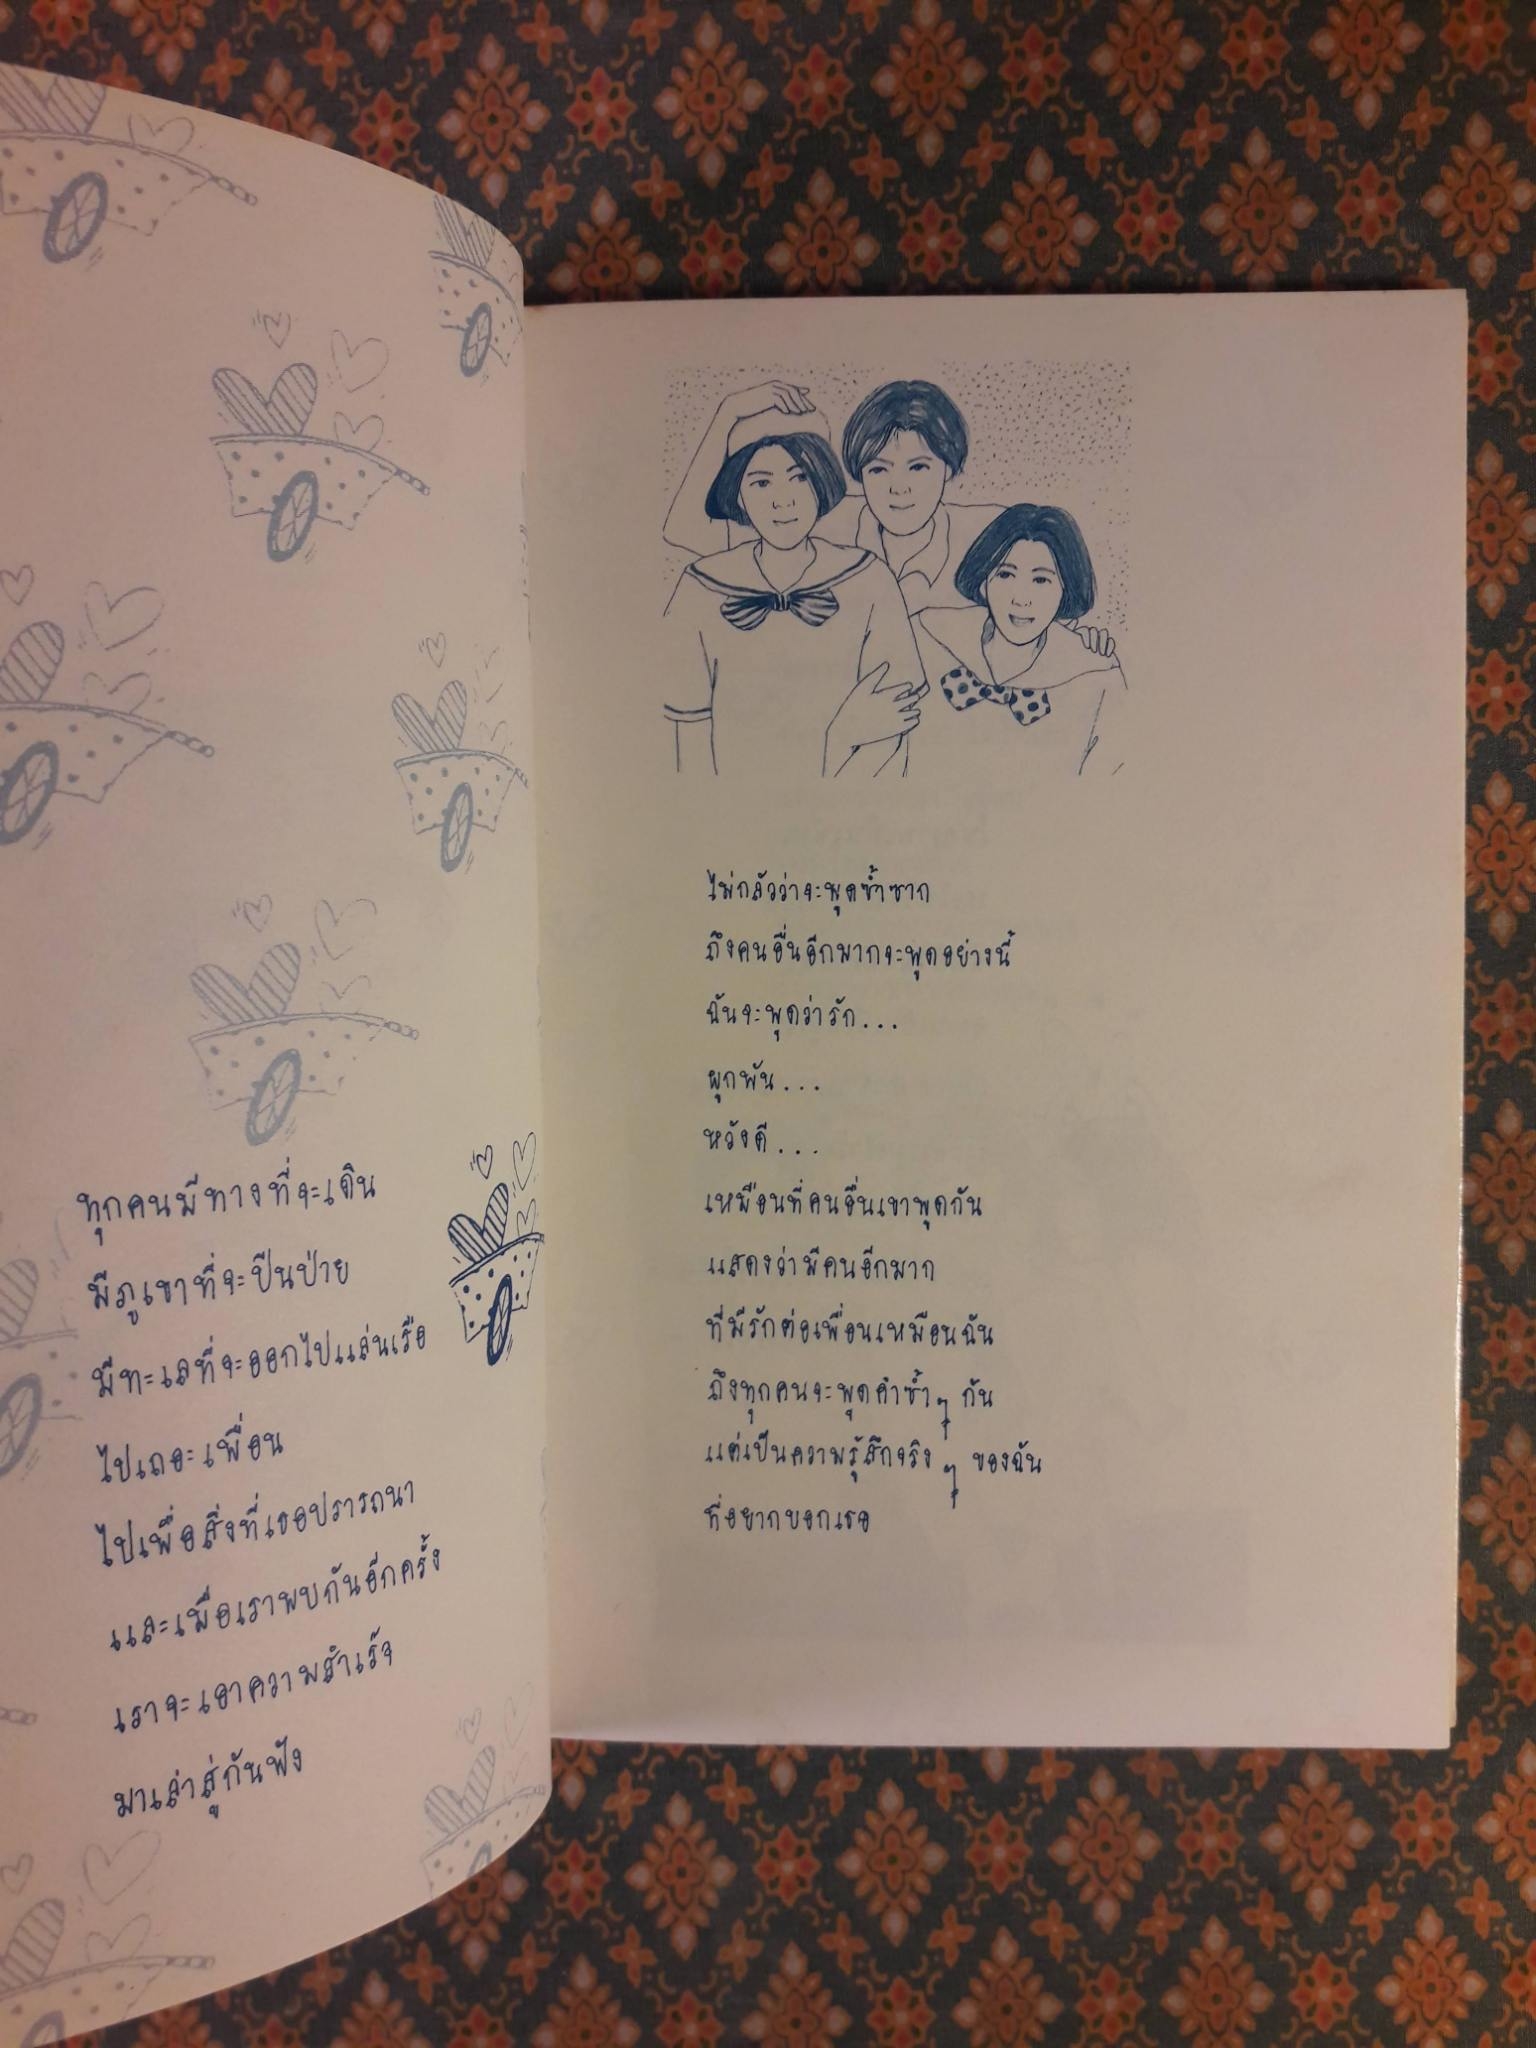 ทุกคนมีทางที่จะเดิน
มีภูเขาที่จะปีนป่าย
มีทะเลที่จะออกไปแล่นเรือ
ไปเถอะเพื่อน
ไปเพื่อสิ่งที่เธอปรารถนา
และเมื่อเราพบกันอีกครั้ง
เราจะเอาความสำเร็จ
มาเล่าสู่กันฟัง
ไม่กลัวว่าจะพูดซ้ำซาก
ถึงคนอื่นอีกมากจะพูดอย่างนี้
ฉันจะพูดว่ารัก...
ผูกพัน...
หวังดี...
เหมือนที่คนอื่นเขาพูดกัน
แสดงว่ามีคนอีกมาก
ที่มีรักต่อเพื่อนเหมือนฉัน
ถึงทุกคนจะพูดคำซ้ำๆ กัน
แต่เป็นความรู้สึกจริงๆ ของฉัน
ที่อยากบอกเธอ